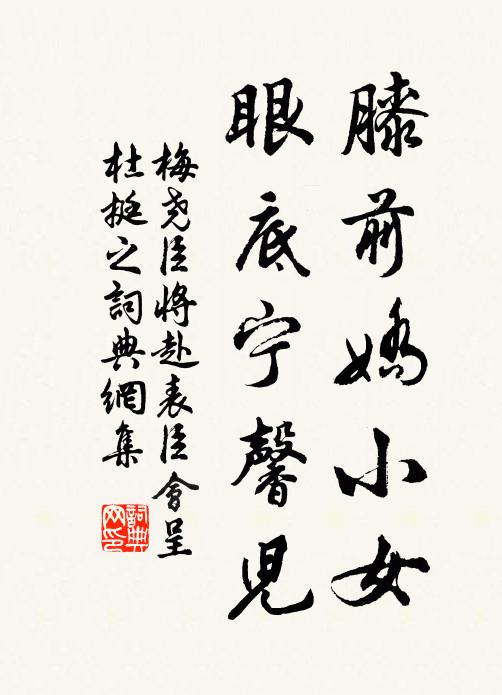 膝前嬌小女
眼底宁馨児
梅尧臣將赴表臣會呈
杜挺之詞典網集
詞典網印